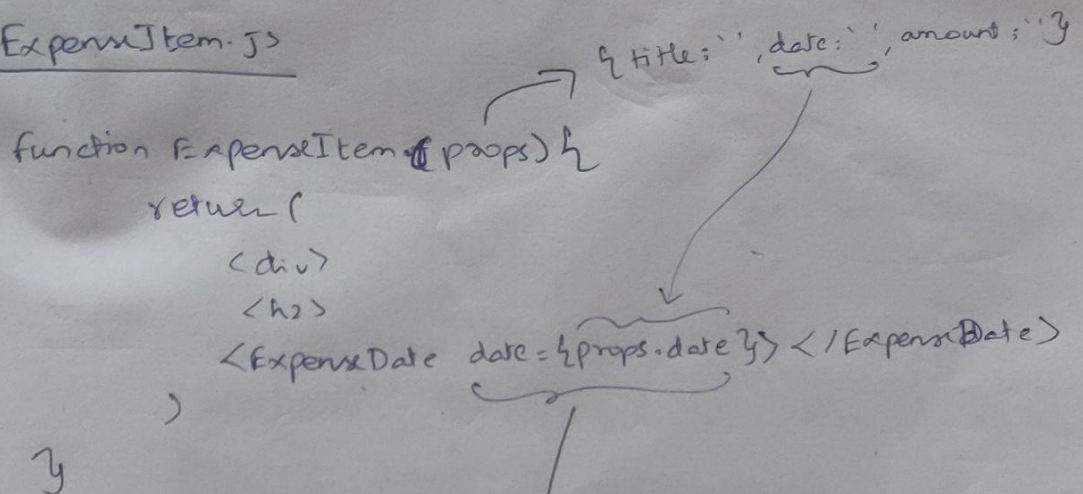 ExpenseItem.js
{ title: '', date: '', amount: '' }
function ExpenseItem(props) {
return (
<div>
<h2>
<ExpenseDate date={props.date}></ExpenseDate>
)
}